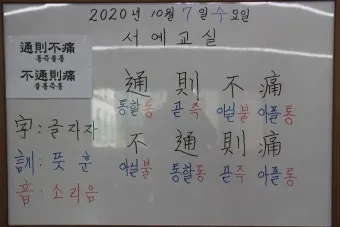 2020년 10월 7일 수요일
서예교실
通則不痛
통즉불통
不通則痛
불통즉통
通 則 不 痛
통할통 곧즉 아닐불 아플통
不 通 則 痛
아닐불 통할통 곧즉 아플통
字:글자자
訓:뜻훈
音:소리음